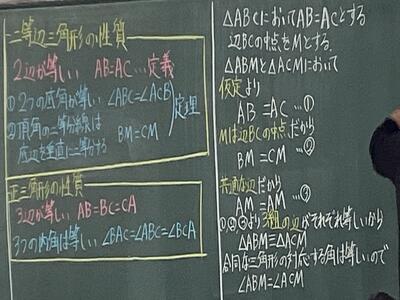 二等辺三角形の性質
2辺が等しい AB=AC…定義
①2つの底角が等しい ∠ABC=∠ACB
②頂角の二等分線は
底辺を垂直に二等分する BM=CM
定理
正三角形の性質
3辺が等しい AB=BC=CA
3つの内角は等しい ∠BAC=∠ABC=∠BCA
△ABCにおいてAB=ACとする
辺BCの中点をMとする。
△ABMと△ACMにおいて
仮定より
AB=AC…①
Mは辺BCの中点だから
BM=CM…②
共通な辺だから
AM=AM…③
①②③より3組の辺がそれぞれ等しいから
△ABM≡△ACM
合同な三角形の対応する角は等しいので
∠ABM=∠ACM